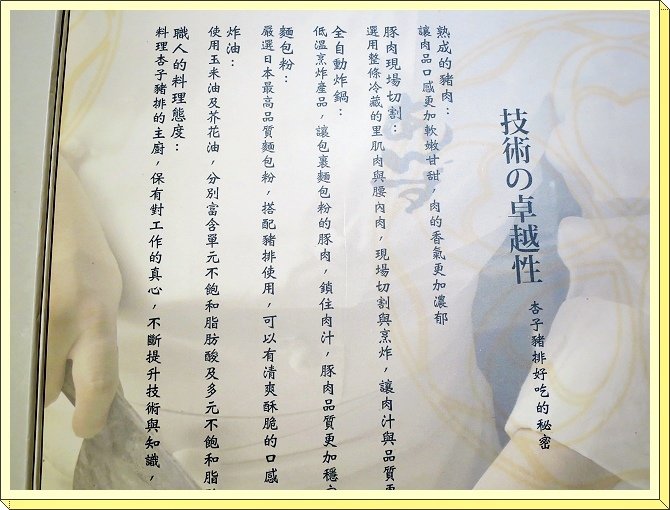 技術の卓越性
杏子豬排好吃的秘密
熟成的豬肉：
讓肉品口感更加軟嫩甘甜，肉的香氣更加濃郁
豚肉現場切割：
選用整條冷藏的里肌肉與腰內肉，現場切割與烹炸，讓肉汁與品質更
全自動炸鍋：
低溫烹炸產品，讓包裹麵包粉的豚肉，鎖住肉汁，豚肉品質更加穩
麵包粉：
嚴選日本最高品質麵包粉，搭配豬排使用，可以有清爽酥脆的口感
炸油：
使用玉米油及芥花油，分別富含單元不飽和脂肪酸及多元不飽和脂
職人的料理態度：
料理杏子豬排的主廚，保有對工作的真心，不斷提升技術與知識，